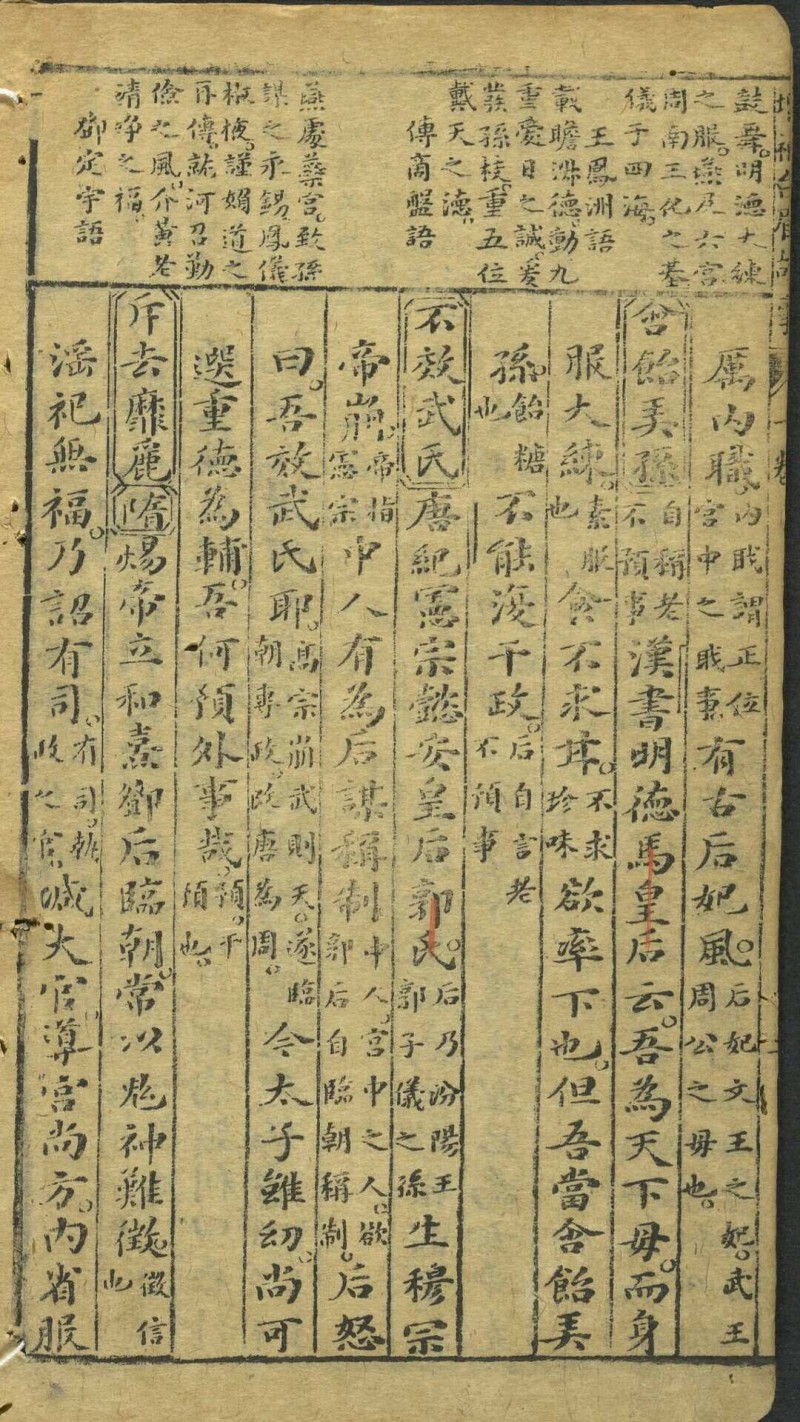 鼓舜。明德大練
之服。燕及六宮
周南王化之基
儀于四海。
王鳳洲語
載瞻洙德動九
重愛日之誠。爰
蕤孫枝。重五位
戴天之德。
傳商盤語
燕處蘂宮。致孫
謀之永錫。鳳儀
椒掖。謹嬪道之
傳。誌河召勤
儉之風。介黃耇
清净之福。
御定字語
厲內職。內戝謂正位宮中之戝事。有古后妃風。后妃文王之妃。武王周公之毋也。
含飴美孫自稱老不預事漢書明德馬皇后云。吾為天下毋。而身
服大練。素服也食不求甘。不求珍味欲率下也。但吾當含飴美
孫。飴糖也不能復干政。后自言老不預事
不效武氏唐紀憲宗懿安皇后郭氏。后乃汾陽王郭子儀之孫生穆宗
帝崩。帝指憲宗中人有為后謀稱制中人。宮中之人。欲郭后自臨朝稱制。后怒
曰。吾效武氏耶。高宗崩武則天。遂臨朝專政。改唐為周。今太子雖幼。尚可
選重德為輔。吾何預外事哉。預。干預也。
斥去靡麗隋煬帝立和熹鄧后臨朝。常以鬼神難徵。徵信也
滛祀無福。乃詔有司。有司。執政之官。減大官導官尚方。內省服